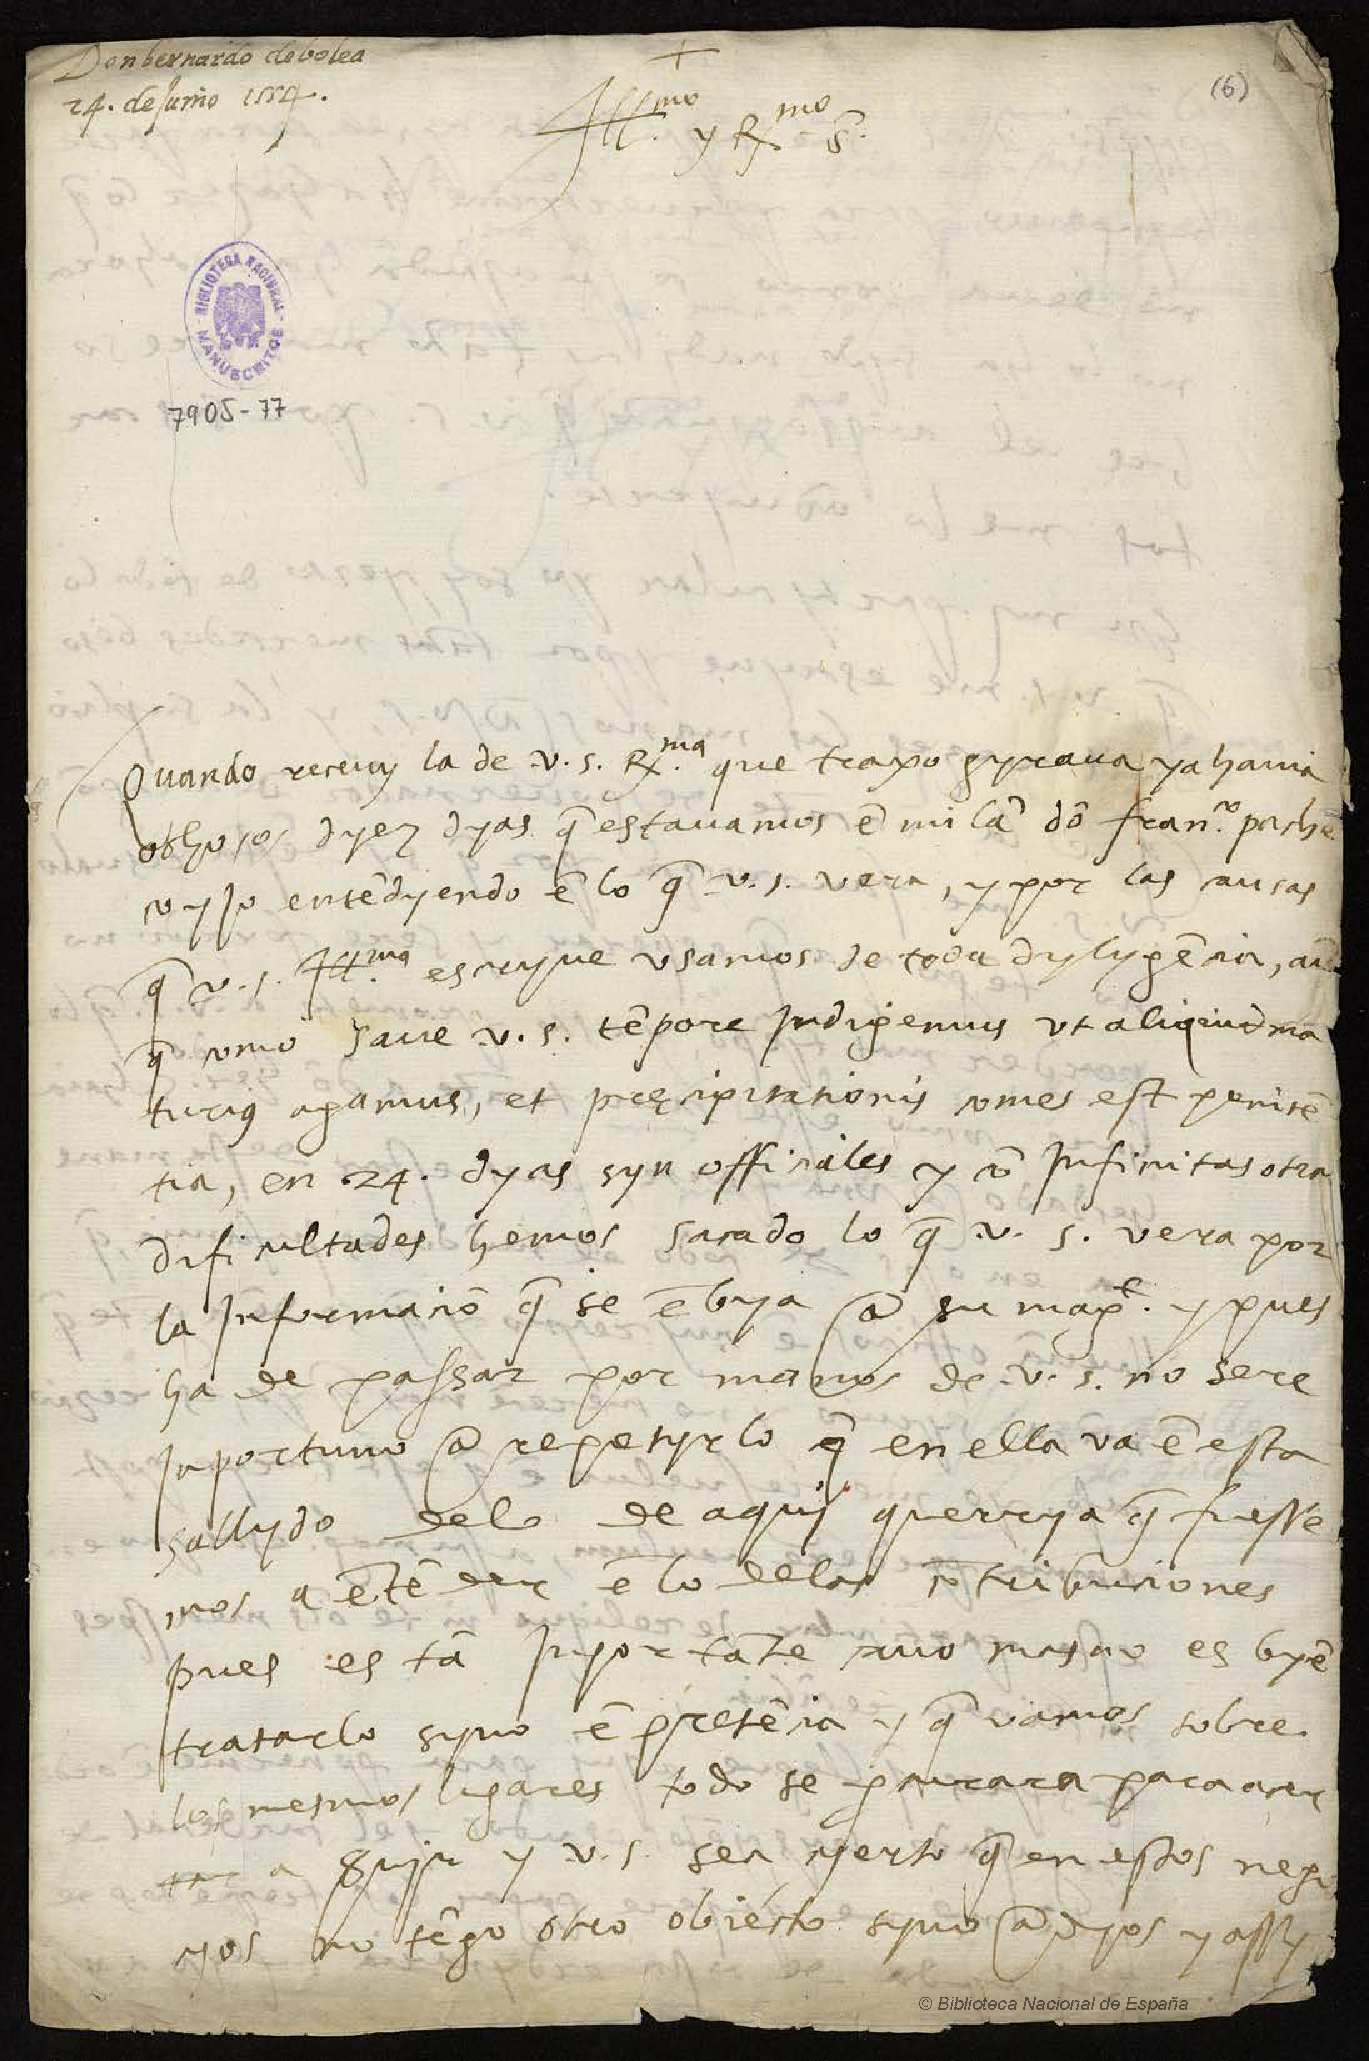 Don bernardo de bolea
24. de Junio 1554.
+
(6)
Ill.mo y R.mo S.
BIBLIOTECA NACIONAL
MANUSCRITOS
7905-77
Quando receuy la de v. s. R.ma que traxo ya hauia
dyez dyas q̃ estauamos ẽ milã dõ fran.co pachẽ
co y yo entẽdyendo ẽ lo q̃ v. s. vera, y por las causas
q̃ v. s. Ill.ma escryue usamos de toda dylygẽcia, aũ
q̃ como saue v. s. tẽpore Indigemus vt aliquid ma
turius agamus, et precipitationis comes est penitẽ
tia, en 24. dyas syn officiales y cõ Infinitas otra
dificultades hemos sacado lo q̃ v. s. vera por
la Informaciõ q̃ se ẽbya a su mag.t y pues
ha de passar por manos de v. s. no sere
Inportuno a repetyrlo q̃ en ella va ẽ esta
sallydo delo de aquy querrya q̃ fuesse
mos a ẽtẽder ẽ lo delas cõtribuciones
pues es tã Inportãte mas no es byẽ
tratarlo syno ẽ presẽcia y q̃ vamos sobre
los mesmos lugares todo se procurara para
a y v. s. sea cyerto q̃ en estos nego
cyos no tẽgo otro obiecto syno a dyos y assy
© Biblioteca Nacional de España